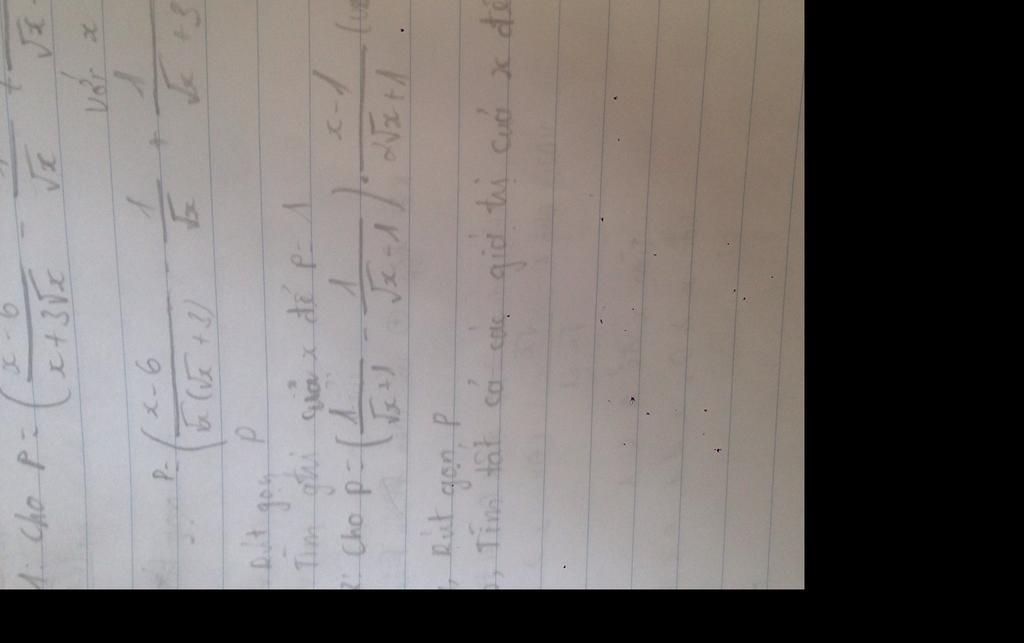 1. Cho P = ( x - 6 / x + 3√x - 1 / √x + / √x
Với x
P = ( x - 6 / √x (√x + 3) - 1 / √x + 1 / √x + 3
Rút gọn P
Tìm của x để P = 1
2: Cho P = ( 1 / √x + 1 - 1 / √x - 1 ) : x - 1 / √x + 1
, Rút gọn P
, Tìm tất cả các giá trị của x để